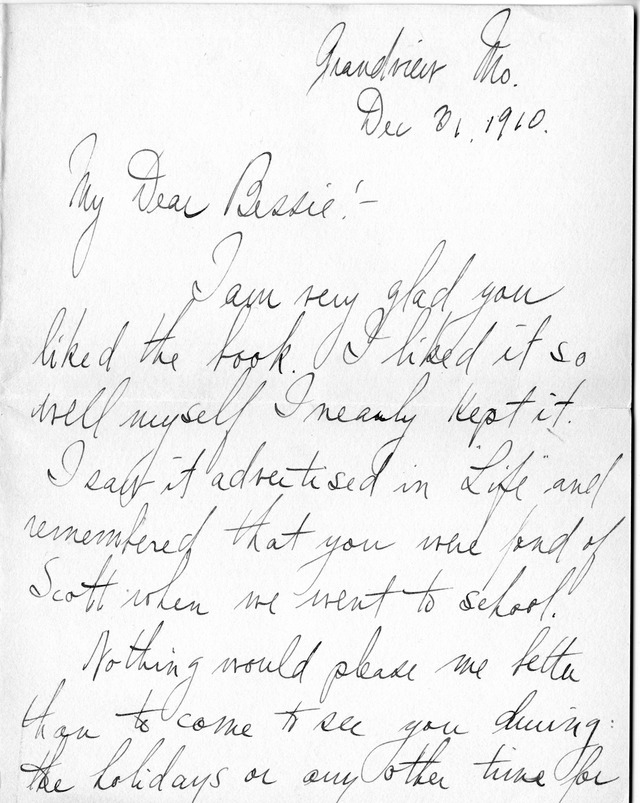 Grandview Mo.
Dec 31, 1910.
My Dear Bessie:-
I am very glad you
liked the book. I liked it so
well myself I nearly kept it.
I saw it advertised in "Life" and
remembered that you were fond of
Scott when we went to school.
Nothing would please me better
than to come to see you during
the holidays or any other time for